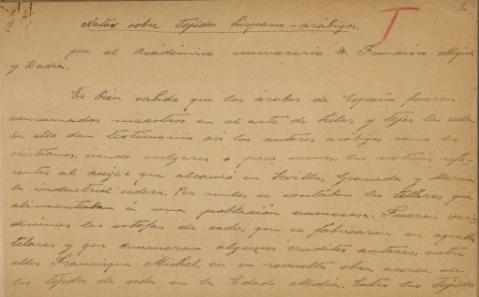 Notas sobre tejidos hispano-arábigos.
por el Académico numerario D. Francisco Miquel
y Badía.
Es bien sabido que los árabes de España fueron
consumados maestros en el arte de hilar y tejer la seda.
De ello dan testimonio así los autores arábigos como los
cristianos, siendo vulgares o poco menos las noticias refe-
rentes al auge que alcanzó en Sevilla, Granada y Murcia
la industria sedera. Por miles se contaban los telares que
alimentaban á una población numerosa. Fueron vari-
dísimas las estofas de seda que se fabricaron en aquellos
telares y que enumeran algunos eruditos autores, entre
ellos Francisque Michel, en su revuelta obra acerca de
los tejidos de seda en la Edad Media. Entre los tejidos